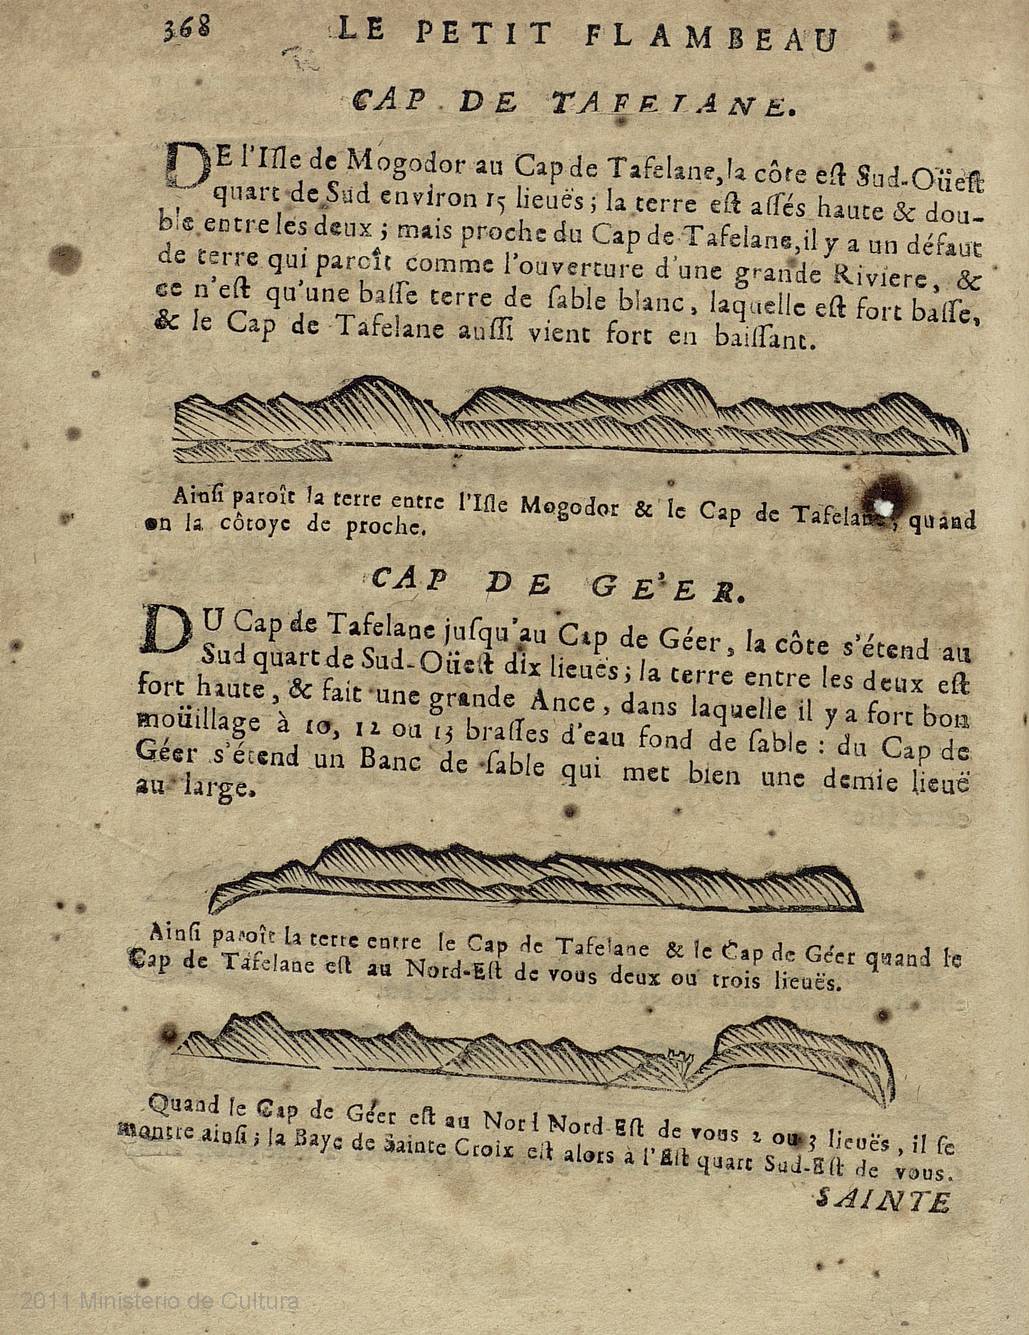 368 LE PETIT FLAMBEAU
CAP DE TAFELANE.
DE l'Iſle de Mogodor au Cap de Tafelane, la côte eſt Sud-Oüeſt
quart de Sud environ 15 lieuës; la terre eſt aſſés haute & dou-
ble entre les deux; mais proche du Cap de Tafelane, il y a un défaut
de terre qui paroît comme l'ouverture d'une grande Riviere, &
ce n'eſt qu'une baſſe terre de ſable blanc, laquelle eſt fort baſſe,
& le Cap de Tafelane auſſi vient fort en baiſſant.
Ainſi paroît la terre entre l'Iſle Mogodor & le Cap de Tafelane, quand
on la côtoye de proche.
CAP DE GE'ER.
DU Cap de Tafelane juſqu'au Cap de Géer, la côte s'étend au
Sud quart de Sud-Oüeſt dix lieuës; la terre entre les deux eſt
fort haute, & fait une grande Ance, dans laquelle il y a fort bon
moüillage à 10, 12 ou 13 braſſes d'eau fond de ſable: du Cap de
Géer s'étend un Banc de ſable qui met bien une demie lieuë
au large.
Ainſi paroît la terre entre le Cap de Tafelane & le Cap de Géer quand le
Cap de Tafelane eſt au Nord-Eſt de vous deux ou trois lieuës.
Quand le Cap de Géer eſt au Nord Nord-Eſt de vous 2 ou 3 lieuës, il ſe
montre ainſi; la Baye de Sainte Croix eſt alors à l'Eſt quart Sud-Eſt de vous.
SAINTE
2011 Ministerio de Cultura